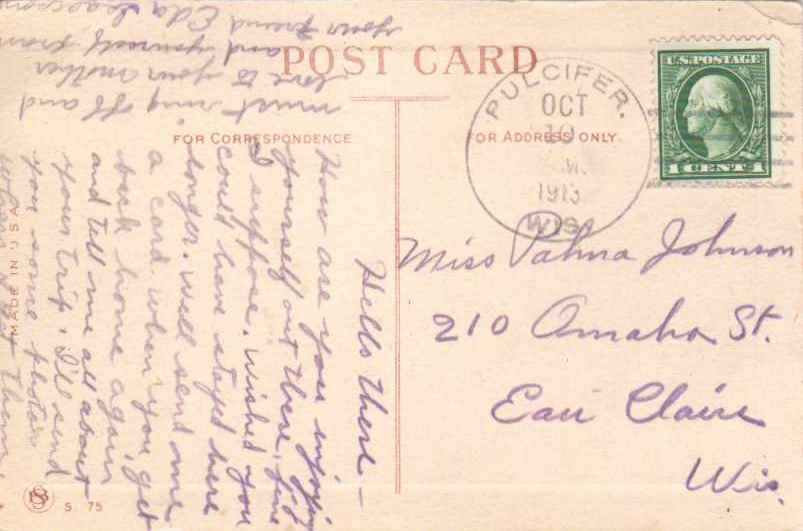 POST CARD
FOR CORRESPONDENCE
FOR ADDRESS ONLY.
PULCIFER.
OCT
10
1913
WIS.
U.S. POSTAGE
1 CENT 1
Miss Palma Johnson
210 Omaha St.
Eau Claire
Wis.
Hello there –
How are you enjoying
yourself out there, fine
I suppose. Wished you
could have stayed here
longer. Well send me
a card when you get
back home again
and tell me all about
your trip. I'll send
you some photos
when I get them.
must ring off and
love to your mother
and yourself from
your friend Eda
MADE IN U S A
S 75